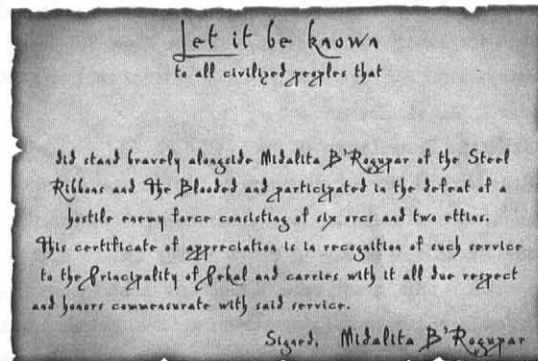 Let it be known
to all civilized peoples that
did stand bravely alongside Midalita B'Rogupar of the Steel
Ribbons and The Blooded and participated in the defeat of a
hostile enemy force consisting of six orcs and two ettins.
This certificate of appreciation is in recognition of such service
to the Principality of Pekal and carries with it all due respect
and honors commensurate with said service.
Signed, Midalita B'Rogupar